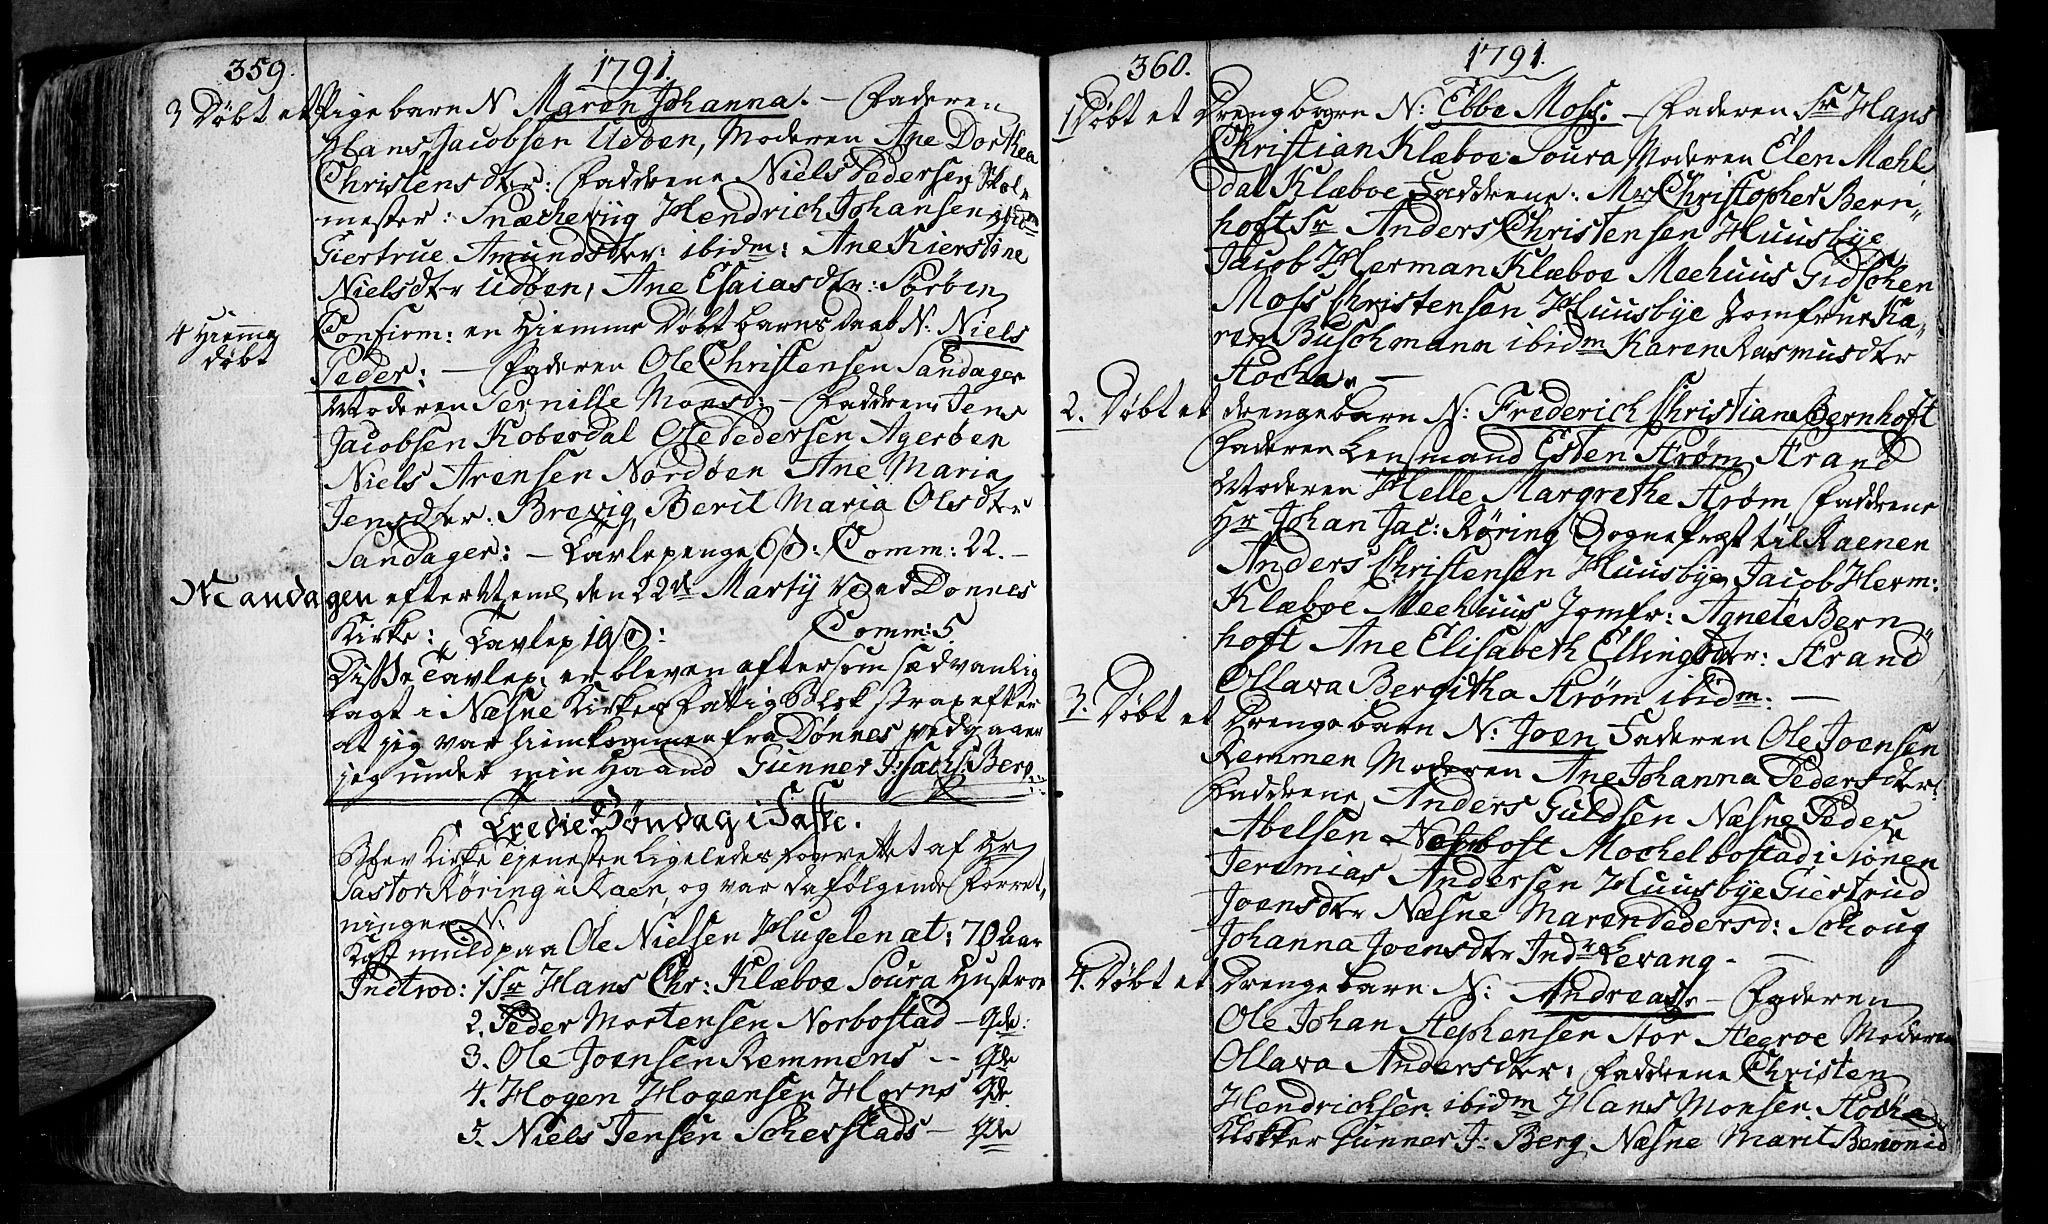 359.
1791.
3 Døbt et Pige barn N. Maren Johanna. – Faderen
Hans Jacobsen Udøen, Moderen Ane Dorthea
Christensdtr: Faddrene Niels Pedersen Skol-
mester: Hendrich Johansen ibidm
Giertrue Amundsdtr: ibidm: Ane Kierstine
Nielsdtr Udøen, Ane Esaiasdtr: Sørøen
4 Hiemme
døbt
Confirm: en Hiemme Døbt barns daab N. Niels
Peder: – Faderen Ole Christensen Sandager
Moderen Pernille Monsd: – Faddrene Jens
Jacobsen Koberdal Ole Pedersen Agerøen
Niels Arensen Nordøen Ane Maria
Jensdtr. Brevig, Berit Maria Olsdtr
Sandager: – Tavlepenge 6 : Comm: 22. –
Mandagen efter den 22de Martij ved Dønnes
Kirke: Tavlep 19 : Comm: 5.
Disse Tavlep: er bleven eftersom sædvanlig
lagt i Næsne Kirkes Fattig Blok strax efter
at jeg var hiemkommen fra Dønnes vedgaaer
jeg under min Haand Gunner J: sachs: Berg
Tredie Søndag i Faste.
Blev Kirke Tjenesten Ligeledes forrettet af Hr
Pastor Røring i Raen, og var da følgende Forret-
ninger N.
Kast muld paa Ole Nielsen Hugelen æt: 70 Aar
Introd: 1 Sr Hans Chr: Klæboe Soura Hustroe
2. Peder Mortensen Norbostad – qde:
3. Ole Joensen Remmens -- qde
4. Hogen Hogensen Horns qde
5. Niels Jensen Scherstads – qde
360.
1791.
1 Døbt et Drengbarn N: Ebbe Moss. – Faderen Sr Hans
Christian Klæboe: Soura Moderen Elen Mæhl
dal Klæboe Faddrene: Mr Christopher Bern-
hoft Sr Anders Christensen Huusbye
Jacob Herman Klæboe Meehuus Gidschen
Moss Christensen Huusbye Jomfrue Ka-
ren Buschmann ibidm Karen Rasmusdtr
Stocha. –
2. Døbt et drengebarn N: Frederich Christian Bernhoft
Faderen Lensmand Esten Strøm Strand
Moderen Helle Margrethe Strøm Faddrene
Hr Johan Jac: Røring Sognepræst til Raenen
Anders Christensen Huusbye Jacob Herm:
Klæboe Meehuus Jomfr: Agnete Bern-
hoft Ane Elisabeth Ellingsdtr: Strand
Ollava Bergitha Strøm ibidm: –
3. Døbt et Drengebarn N: Joen Faderen Ole Joensen
Remmen Moderen Ane Johanna Pedersdtr:
Faddrene Anders Guldsen Næsne Peder
Abelsen Mochelbostad i Siønen
Jeremias Andersen Huusbye Giertrud
Joensdtr Næsne Maren Pedersd: Schoug
Johanna Joensdtr Indr Levang. –
4. Døbt et Drengebarn N: Andreas. – Faderen
Ole Johan Stephensen Stor Stegroe Moderen
Ollava Andersdtr: Faddrene Christen
Hendrichsen ibidm Hans Monsen Stocha
Klokker Gunner J: Berg Næsne Marit Benonid